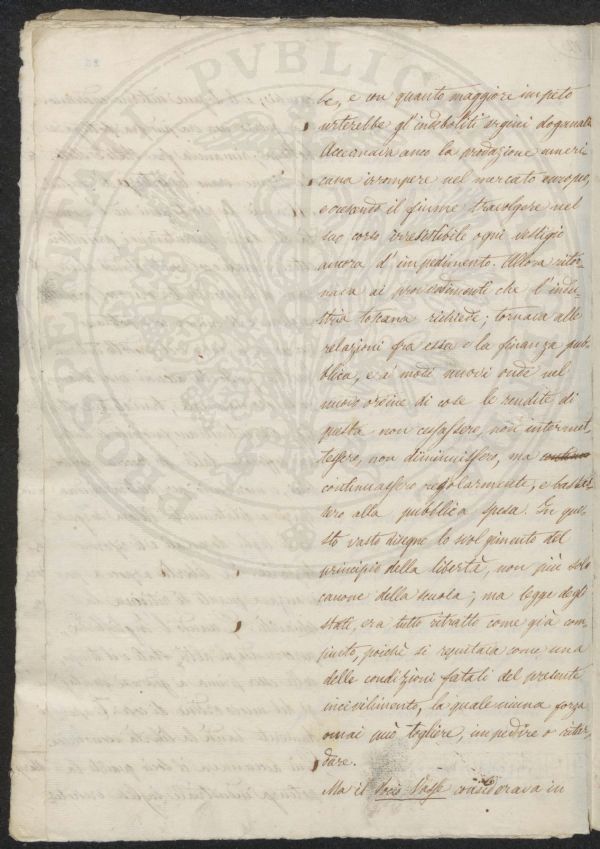 PROSPERITATI PVBLICAE
be, e con quanto maggiore impeto
urterebbe gl'indeboliti argini doganali.
Accennava anco la produzione ameri
cana irrompere nel mercato europeo,
e crescendo il fiume travolgere nel
suo corso irresistibile ogni vestigio
ancora d'impedimento. Allora ritor-
nava ai procedimenti che l'indu-
stria toscana richiede; tornava alle
relazioni fra essa e la finanza pub-
blica, e a' modi nuovi onde nel
nuovo ordine di cose le rendite di
questa non cessassero, non intermet-
tessero, non diminuissero, ma
continuassero regolarmente, e bastas-
sero alla pubblica spesa. In que-
sto vasto disegno lo svolgimento del
principio della libertà, non più solo
canone della scuola; ma legge degli
stati, era tutto ritratto come già com
piuto, poichè si reputava come una
delle condizioni fatali del presente
incivilimento, la quale niuna forza
omai può togliere, impedire o ritar-
dare.
Ma il Socio considerava in